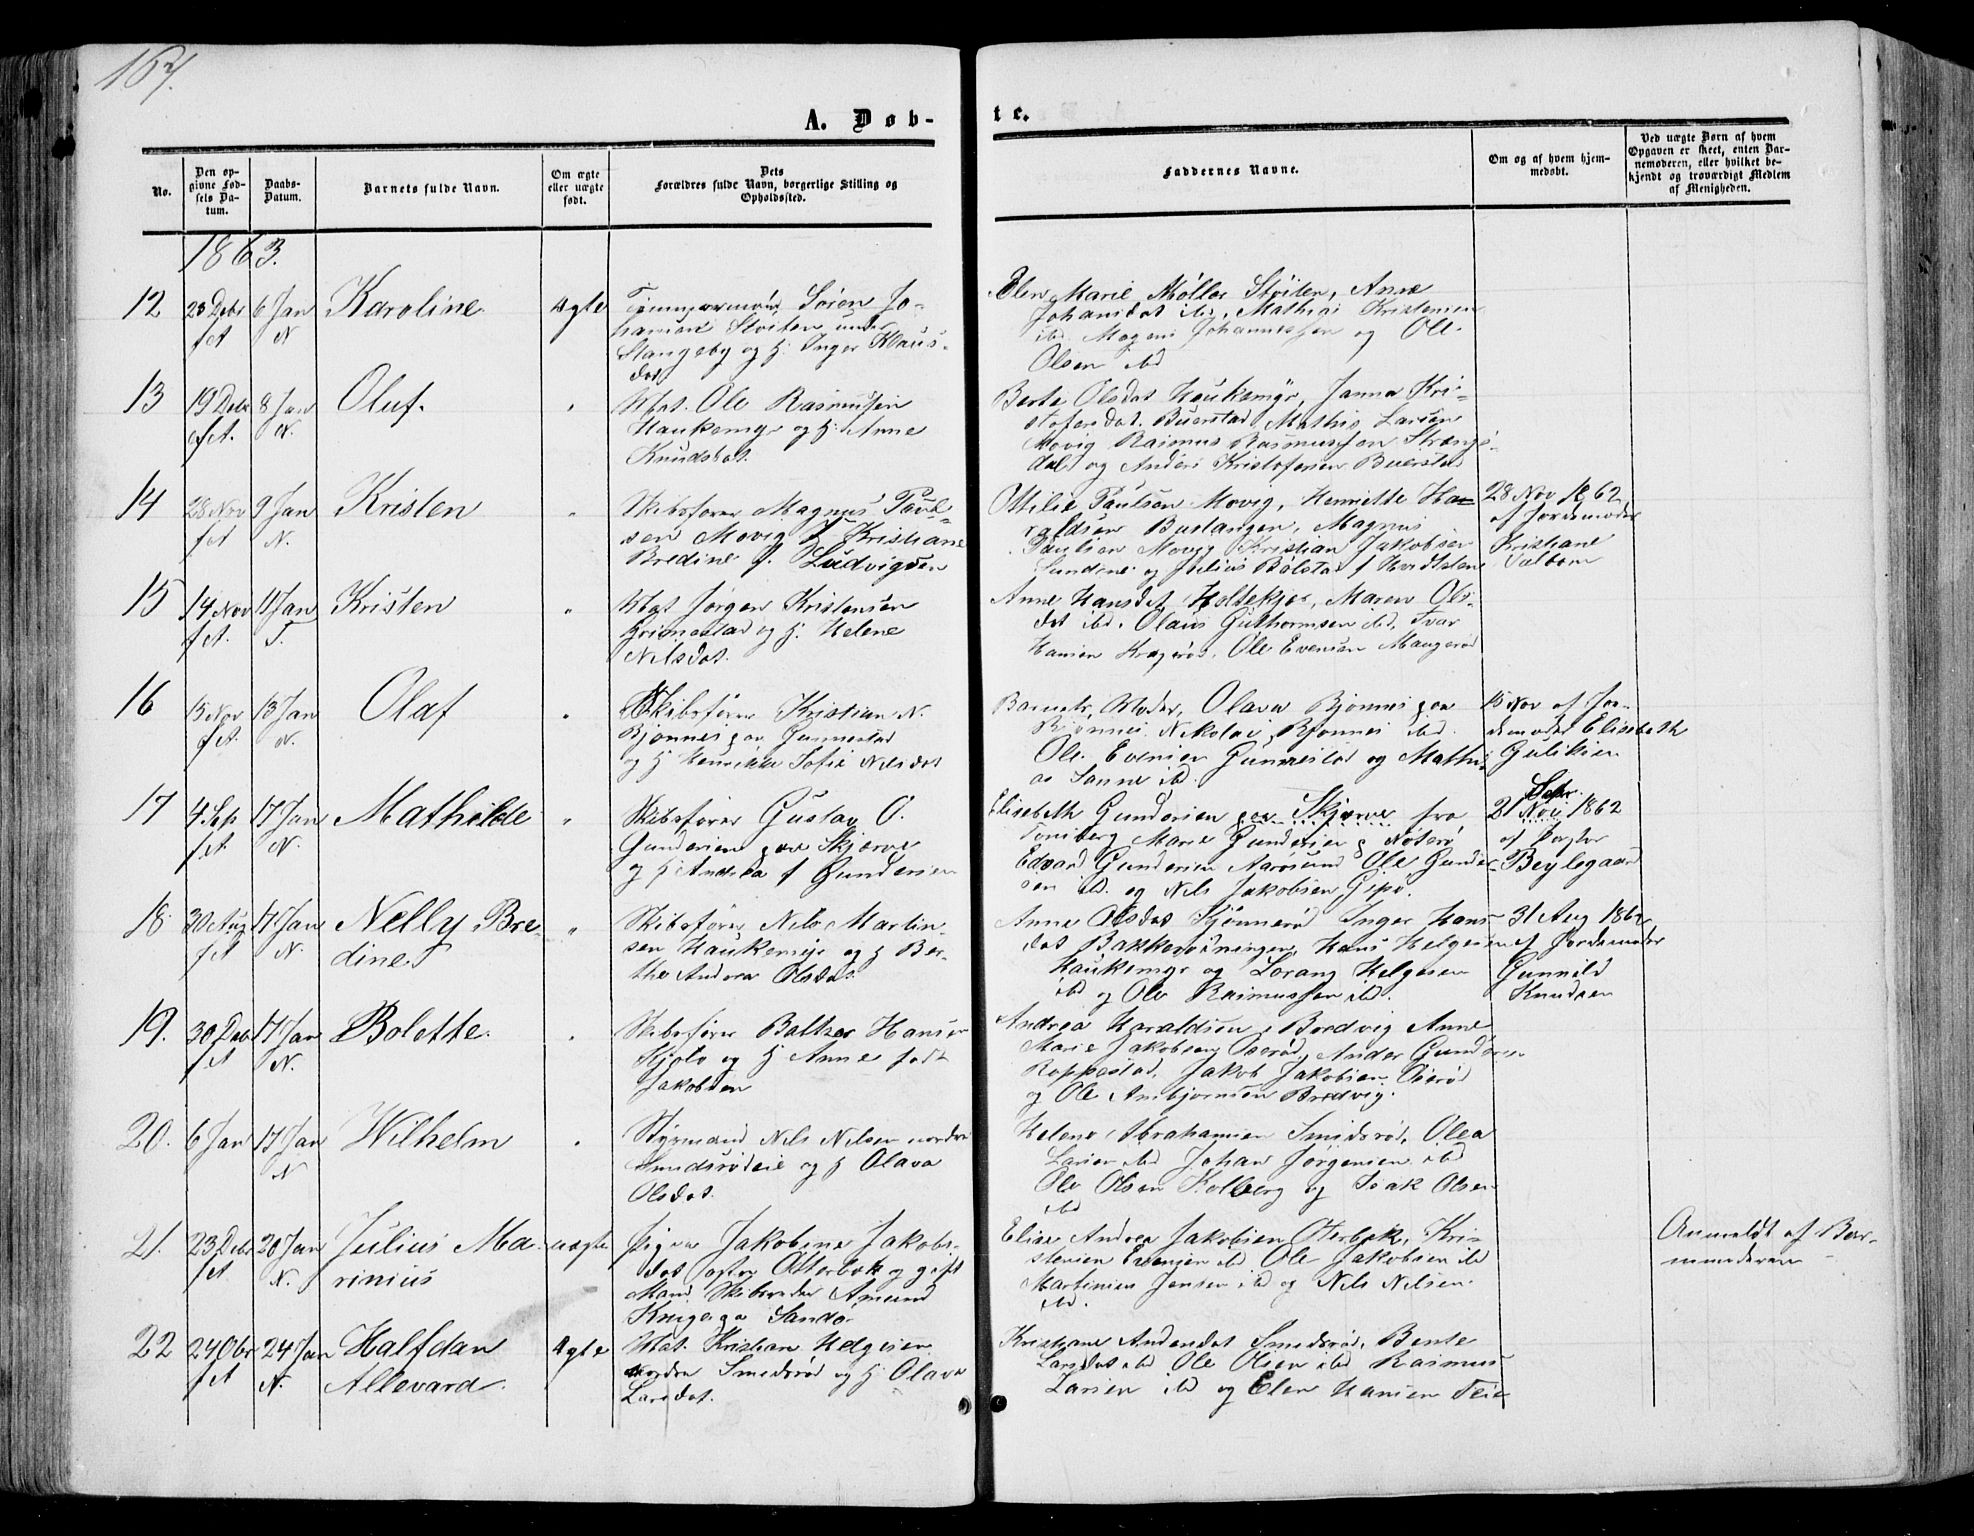 167.
A. Døb-
te.
No.
Den op-
givne Fød-
sels Da-
tum.
Daabs-
Datum.
Barnets fulde Navn.
Om ægte
eller uægte
født.
Dets
Forældres fulde Navn, borgerlige Stilling og
Opholdssted.
Faddernes Navne.
Om og af hvem hjem-
medøbt.
Ved uægte Børn af hvem
Opgaven er skeet, enten Bar-
nemoderen, eller hvilket be-
kjendt og troværdigt Medlem
af Menigheden.
1863.
12 23 Debr 6 Jan Karoline. Ægte Tømmermand Søren Jo-
f A N hansen Støiten under
Stangeby og H. Inger Klaus-
dat
Elen Marie Møller Støiten, Anne
Johansdat ibd, Mathias Kristensen
ibd. Mogens Johannessen og Ole
Olsen ibd
13 19 Debr 8 Jan Oluf. " Mat. Ole Rasmussen
f A. N. Haukemyr og H. Anne
Knudsdat.
Berte Olsdat Haukemyr, Janna Kri-
stofersdat. Buerstad Mathis Larsen
Movig Rasmus Rasmussen Strengs-
dal og Anders Kristofersen Buerstad
14 28 Nov 9 Jan Kristen " Skibsfører Magnus Paul-
f A N. sen Movig H Kristiane
Bredine f. Ludvigsen
Ottilie Paulsen Movig, Henriette Ha-
raldsen Buslangen, Magnus
Paulsen Movig Kristian Jakobsen
Sundene og Julius Bolstad f Hvidtsten
28 Nov 1862
af Jordemoder
Kristiane
Valbom
15 14 Nov 11 Jan Kristen " Mat Jørgen Kristensen
f A. T. Grimestad og H. Helene
Nilsdat.
Anne Hansdat Holtekjær, Maren Ols-
dat ibd. Olaus Guthormsen ibd, Ivar
Hansen Kragerøe, Ole Evensen Maugerød
16 15 Nov 13 Jan Olaf " Skibsfører Kristian N.
f A. N. Bjønnes paa Gunnestad
og H Henrikke Sofie Nilsdat
Barnets Moder, Olava Bjønnes paa
Bjønnes, Nikolai Bjønnes ibd.
Ole Evensen Gunnestad og Mathi-
as Sanne ibd.
15 Nov af Jor-
demoder Elisebeth
Guliksen
17 4 Sep 17 Jan Mathilde " Skibsfører Gustav O.
f A. N. Gundersen paa Skjerve
og H Andrea f Gundersen
Elisebeth Gundersen paa Skjerve fra
Tønsberg Marie Gundersen Nøterø
Edvard Gundersen Aarøsund Ole Gunder-
sen ibd. og Nils Jakobsen Gipø.
Septr.
21 Nov 1862
af Pastor
Beylegaard
18. 30 Aug 17 Jan Nelly Bre- " Skibsfører Nils Martin-
f A N. dine sen Haukemyr og H Ber-
the Andera Olsdat.
Anne Olsdat Skjønnerød Inger Hans-
dat Bakkerønningen, Hans Helgesen
Haukemyr og Lorang Helgesen
ibd og Ole Rasmussen ibd.
31 Aug 1862
af Jordemoder
Gunnild
Knudsen
19. 30 Dec 17 Jan Bolette. " Skibsfører Baltzer Hansen
f A N. Kjøle og H Anne født
Jakobsen
Andrea Haraldsen, Bredvig Anne
Marie Jakobsen Oserød, Anders Gunder-
Roppestad, Jakob Jakobsen Oserød
og Ole Ambjørnsen Bredvig.
20. 6 Jan 17 Jan Wilhelm " Styrmand Nils Nilsen nordre
N Smidsrødeie og H Olava
Olsdat.
Helene Abrahamsen Smidsrød, Olea
Larsen ibd Johan Jørgensen ibd
Ole Olsen Kolberg og Isak Olsen
ibd
21. 23 Debr 20 Jan Julius Ma- uægte Pigen Jakobine Jakobs-
f A N. rinius dat Otterbæk og gift
Mand Skibsreder Amund
Sandø
Elise Andrea Jakobsen Oterbæk, Kri-
stensen Evensen ibd Ole Jakobsen ibd
Martinsen Jensen ibd og Nils Nilsen
ibd.
Anmeldt af Bar-
nemoderen
22 24 Obr 24 Jan Halfdan Ægte Mat. Kristian Helgesen
f A N. Allevard. nordre Smedsrød og H Olava
Larsdat.
Kristiane Andersdat Smedsrød, Bente
Larsdat ibd Ole Olsen ibd Rasmus
Larsen ibd og Elen Hansen Teie